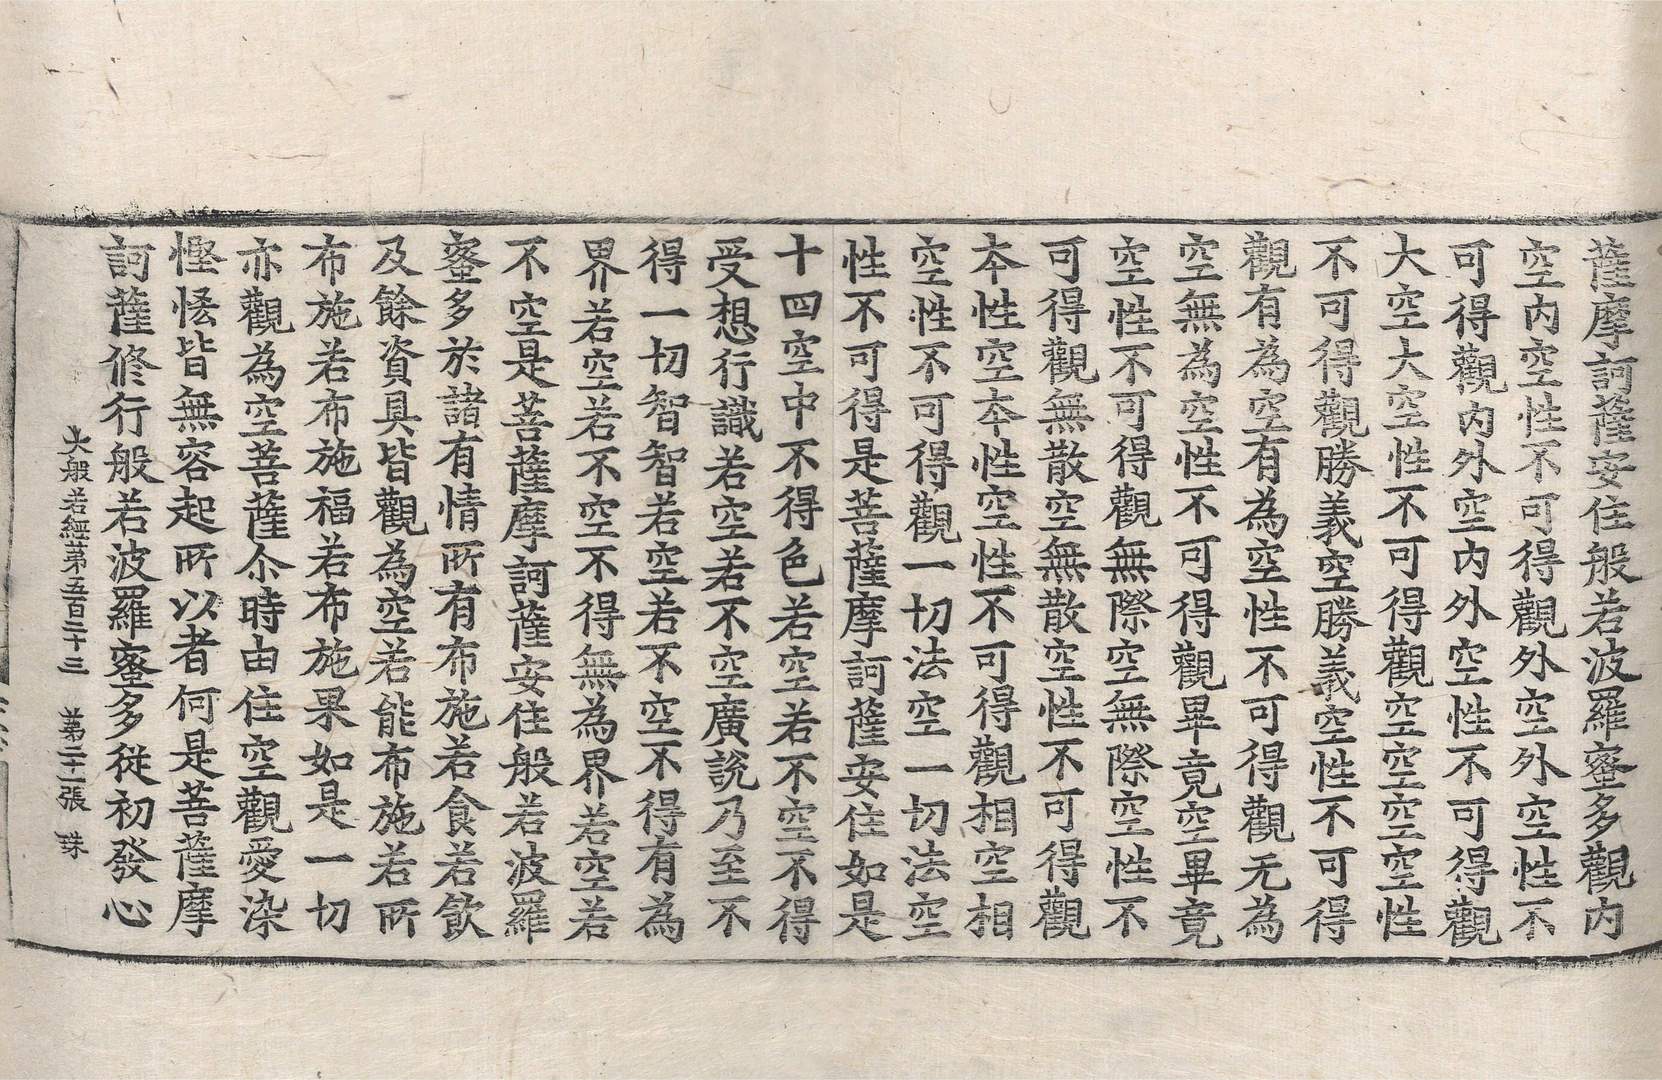 薩摩訶薩安住般若波羅蜜多觀內
空內空性不可得觀外空外空性不
可得觀內外空內外空性不可得觀
大空大空性不可得觀空空空空性
不可得觀勝義空勝義空性不可得
觀有為空有為空性不可得觀无為
空無為空性不可得觀畢竟空畢竟
空性不可得觀無際空無際空性不
可得觀無散空無散空性不可得觀
本性空本性空性不可得觀相空相
空性不可得觀一切法空一切法空
性不可得是菩薩摩訶薩安住如是
十四空中不得色若空若不空不得
受想行識若空若不空廣說乃至不
得一切智智若空若不空不得有為
界若空若不空不得無為界若空若
不空是菩薩摩訶薩安住般若波羅
蜜多於諸有情所有布施若食若飲
及餘資具皆觀為空若能布施若所
布施若布施福若布施果如是一切
亦觀為空菩薩尒時由住空觀愛染
慳悋皆無容起所以者何是菩薩摩
訶薩修行般若波羅蜜多從初發心
大般若經第五百二十三 第二十一張 珠